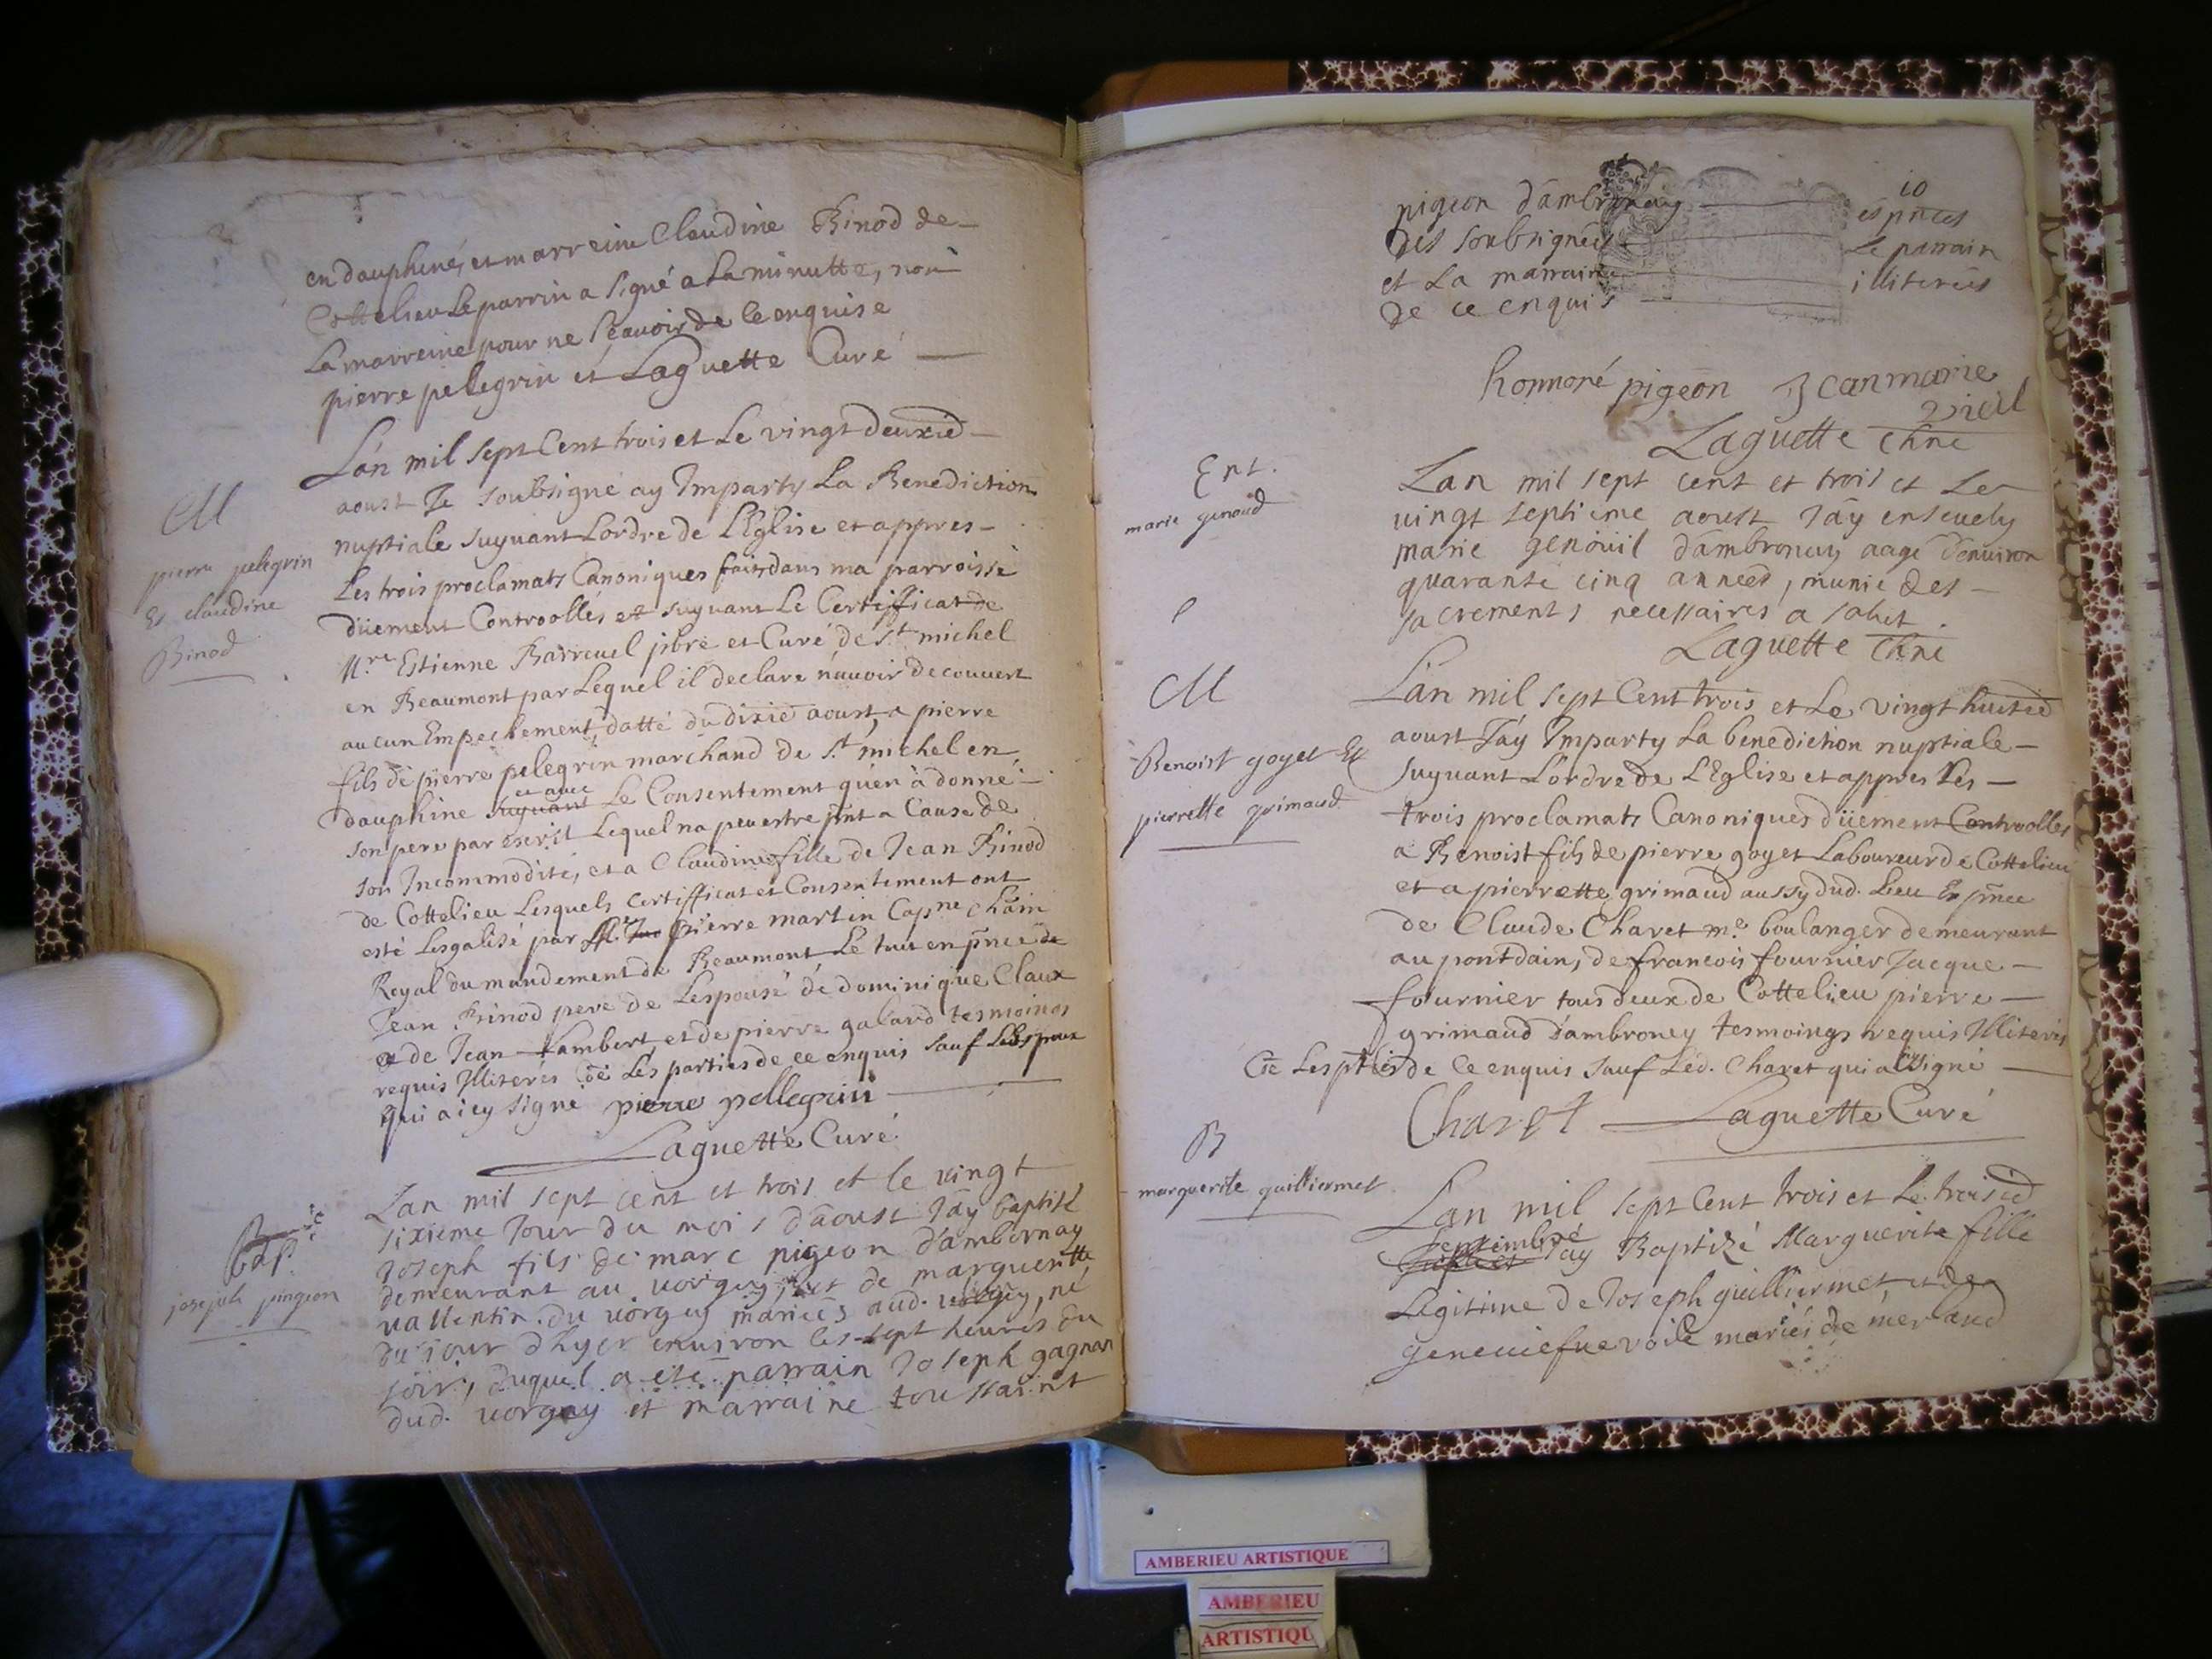 en dauphiné, et marreine Claudine Binod de
Cottelieu Le parrin a signé a La minutte, non
La marreine pour ne sçavoir de ce enquise
pierre pelegrin et Laguette Curé
M
pierre pelegrin
Et claudine
Binod
L'an mil sept Cent trois et Le vingt deuxie
aoust Je soubsigné ay Imparty La Benediction
nuptiale suyuant Lordre de L'Eglise et appres
Les trois proclamats Canoniques faits dans ma parroisse
düement Controollés et suyuant Le Certifficat de
Mre Estienne Barreuel pbre et Curé de St michel
en Beaumont par Lequel il declare n'auoir decouuert
aucun Empechement, datté du dixie aoust, a pierre
fils de pierre pelegrin marchand de St michel en
dauphine suyuant et auec Le Consentement qu'en a donné
son pere par escrit Lequel na peu estre pnt a Cause de
son Incommodité, et a Claudine fille de Jean Binod
de Cottelieu Lesquels Certifficat et Consentement ont
esté Lesgalisé par pierre martin Capne chain
Royal du mandement de Beaumont Le tout en pnce de
Jean Binod pere de Lespouse de dominique Claux
de Jean Lambert, et de pierre galand tesmoings
requis Illiterés Ce Les parties de ce enquis sauf Lespoux
qui a icy signé pierre pellegrin
Laguette Curé
Bap.
joseph pingeon
Lan mil sept cent et trois et le vingt
sixieme Jour du mois d'aoust J'ay baptisé
Joseph fils de marc pigeon d'ambornay
demeurant au vorgey, et de margueritte
vallentin du vorgey mariées aud. vorgey, né
du jour d'hyer enuiron les sept heures du
soir, duquel a eté parrain Joseph gagnan
dud. vorgey et marraine toussaint
10
pigeon d'ambronay és pnces
des soubsignées Le parrain
et La marraine illiterées
de ce enquis
honnoré pigeon Jeanmarie
vial
Laguette Curé
Ent.
marie genoud
Lan mil sept cent et trois et Le
vingt septieme aoust J'ay enseuely
marie genouil d'ambronay aagé d'enuiron
quarante cinq années, munie des
sacrements necessaires a salut.
Laguette Curé
M
Benoist goyet Et
pierrette grimaud
L'an mil sept Cent trois et Le vingt huitie
aoust J'ay Imparty La benediction nuptiale
suyuant Lordre de L'Eglise et appres Les
trois proclamats Canoniques düement Controolles
a Benoist fils de pierre goyet Laboureur de Cottelieu
et a pierrette grimaud aussy dud. Lieu En pnce
de Claude Charet me boulanger demeurant
au pont dain, de francois fournier Jacque
fournier tous deux de Cottelieu pierre
grimaud d'ambroney tesmoings requis Illiterés
Ce Les pties de ce enquis sauf Led. Charet qui a signé
Charet Laguette Curé
B
marguerite guilliermet
Lan mil sept Cent trois et Le troisie
septembre J'ay Baptizé Marguerite fille
Legitime de Joseph guilliermet, et de
geneuiefue voile mariés de merland
AMBERIEU ARTISTIQUE
AMBERIEU
ARTISTIQU